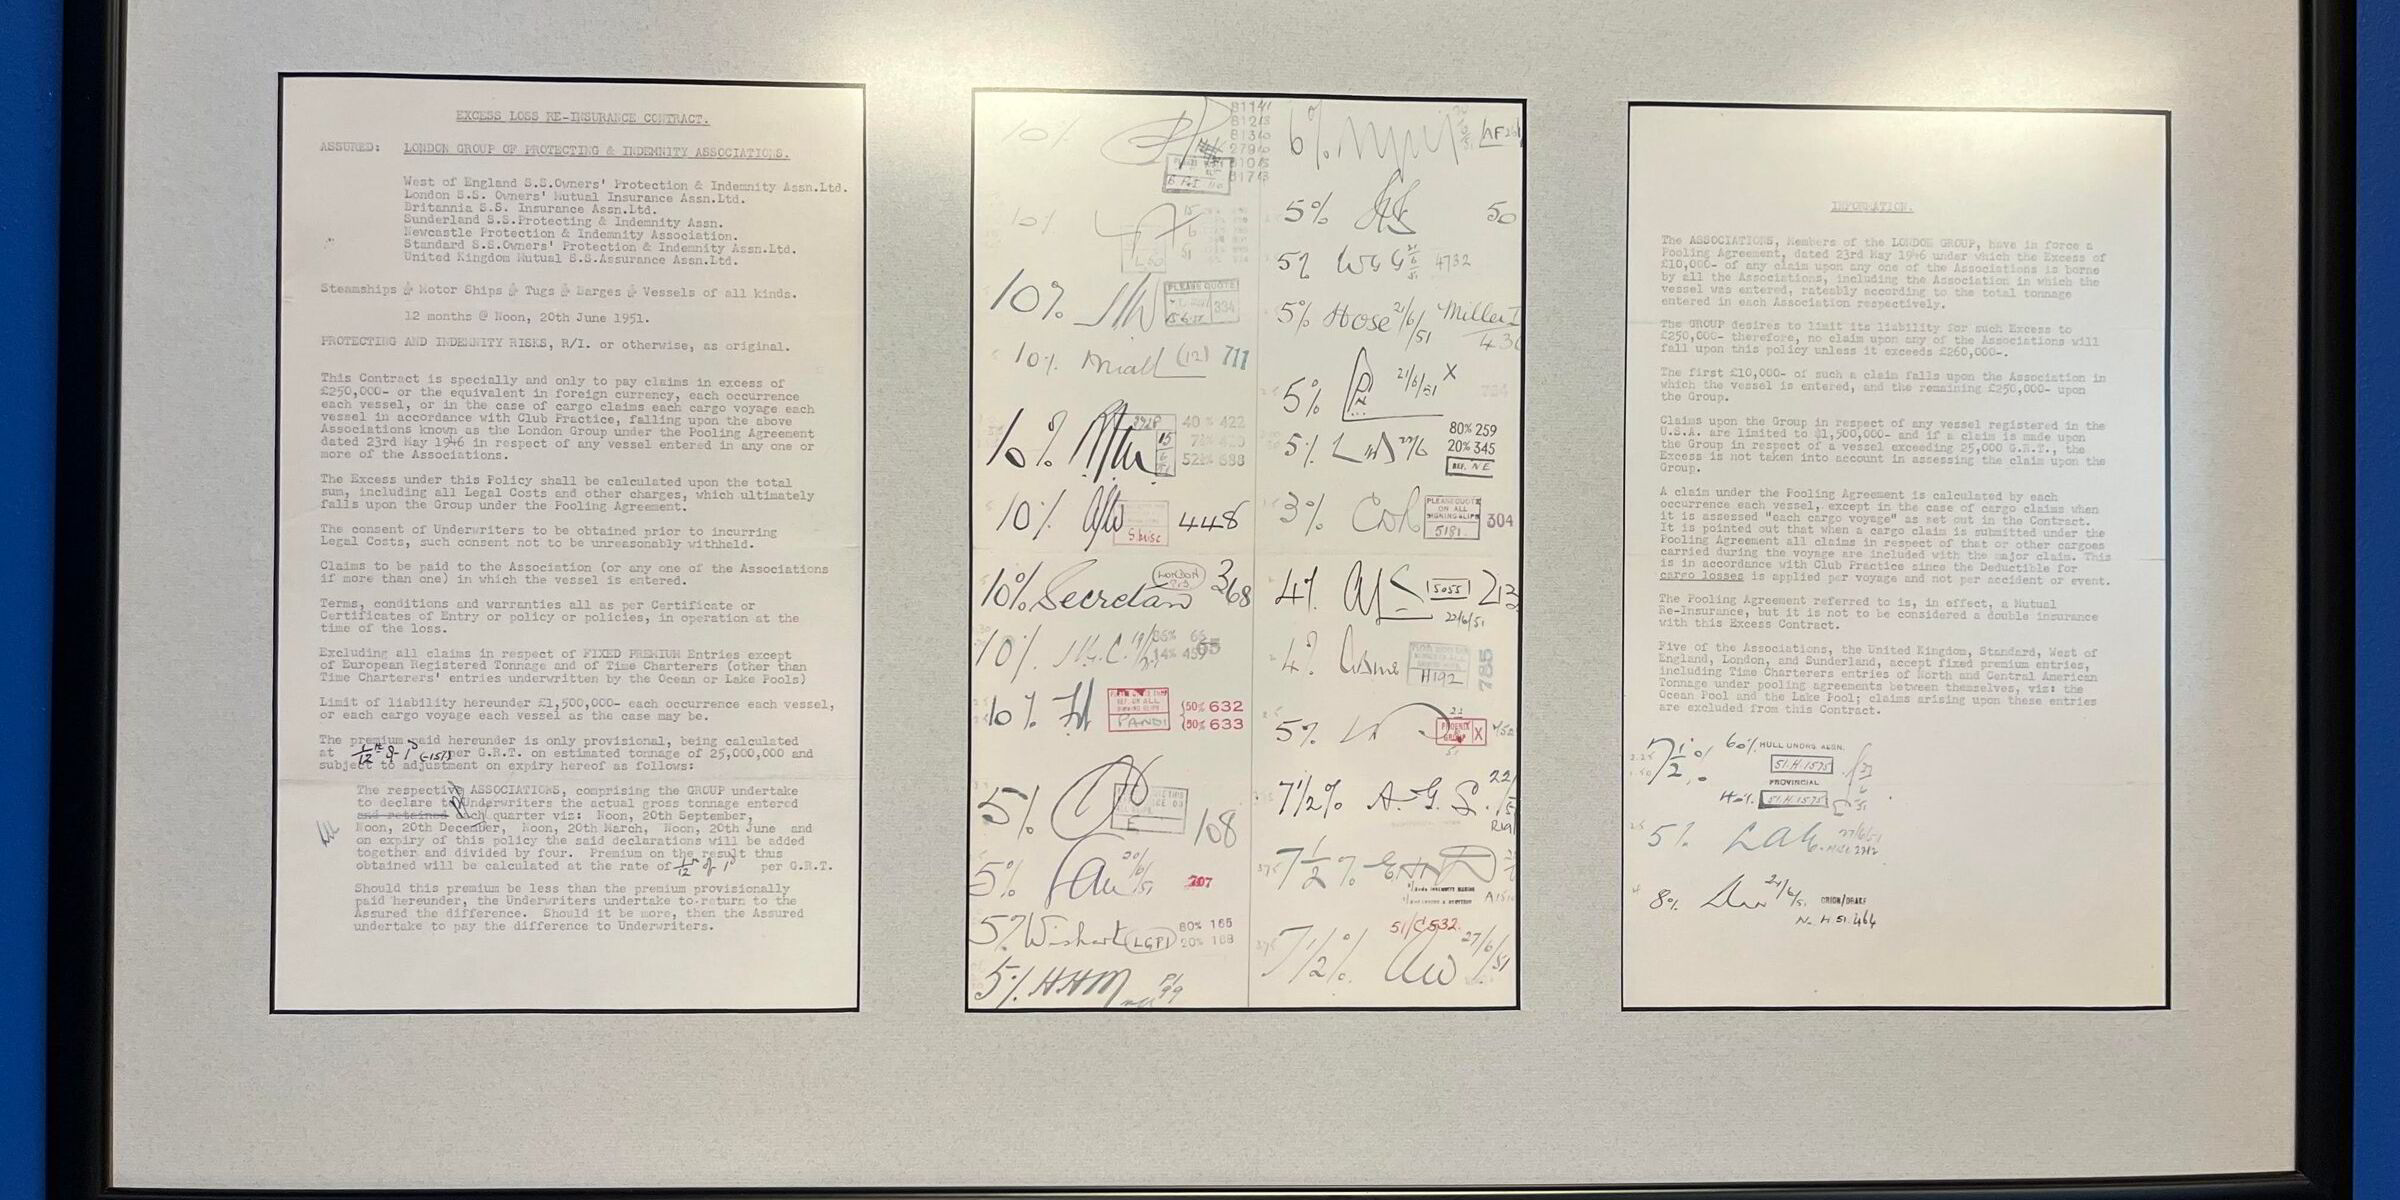 EXCESS LOSS RE-INSURANCE CONTRACT.
ASSURED: LONDON GROUP OF PROTECTING & INDEMNITY ASSOCIATIONS.
West of England S.S.Owners' Protection & Indemnity Assn.Ltd.
London S.S. Owners' Mutual Insurance Assn.Ltd.
Britannia S.S. Insurance Assn.Ltd.
Sunderland S.S.Protecting & Indemnity Assn.
Newcastle Protection & Indemnity Association.
Standard S.S.Owners' Protection & Indemnity Assn.Ltd.
United Kingdom Mutual S.S.Assurance Assn.Ltd.
Steamships & Motor Ships & Tugs & Barges & Vessels of all kinds.
12 months @ Noon, 20th June 1951.
PROTECTING AND INDEMNITY RISKS, R/I. or otherwise, as original.
This Contract is specially and only to pay claims in excess of
£250,000- or the equivalent in foreign currency, each occurrence
each vessel, or in the case of cargo claims each cargo voyage each
vessel in accordance with Club Practice, falling upon the above
Associations known as the London Group under the Pooling Agreement
dated 23rd May 1946 in respect of any vessel entered in any one or
more of the Associations.
The Excess under this Policy shall be calculated upon the total
sum, including all Legal Costs and other charges, which ultimately
falls upon the Group under the Pooling Agreement.
The consent of Underwriters to be obtained prior to incurring
Legal Costs, such consent not to be unreasonably withheld.
Claims to be paid to the Association (or any one of the Associations
if more than one) in which the vessel is entered.
Terms, conditions and warranties all as per Certificate or
Certificates of Entry or policy or policies, in operation at the
time of the loss.
Excluding all claims in respect of FIXED PREMIUM Entries except
of European Registered Tonnage and of Time Charterers (other than
Time Charterers' entries underwritten by the Ocean or Lake Pools)
Limit of liability hereunder £1,500,000- each occurrence each vessel,
or each cargo voyage each vessel as the case may be.
The premium paid hereunder is only provisional, being calculated
at 1/12th of 1d per G.R.T. on estimated tonnage of 25,000,000 and
subject to adjustment on expiry hereof as follows:
The respective ASSOCIATIONS, comprising the GROUP undertake
to declare to Underwriters the actual gross tonnage entered
and retained each quarter viz: Noon, 20th September,
Noon, 20th December, Noon, 20th March, Noon, 20th June and
on expiry of this policy the said declarations will be added
together and divided by four. Premium on the result thus
obtained will be calculated at the rate of 1/12th of 1d per G.R.T.
Should this premium be less than the premium provisionally
paid hereunder, the Underwriters undertake to return to the
Assured the difference. Should it be more, then the Assured
undertake to pay the difference to Underwriters.
10%
10%
10% PLEASE QUOTE 334
10% (12) 711
10% 40% 422
10% 448
10% Secretan LONDON 368
10%
10% PANDI 50% 632
50% 633
5% E 108
5% 20/6/51 707
5% Wishart LGPI 80% 166
20% 168
5% HHM
6%
5% 50
5% WGG 21/6/51 4732
5% Hose 21/6/51 Miller
5% 21/6/51 X
5% 80% 259
20% 345
REF. NE
3% PLEASE QUOTE
ON ALL
SIGNING SLIPS
5181 304
4% 5055
22/6/51
4% H192 785
5% PHOENIX GROUP X
7 1/2% A.G.S.
7 1/2%
51/C532
7 1/2% 27/6/51
INFORMATION.
The ASSOCIATIONS, Members of the LONDON GROUP, have in force a
Pooling Agreement, dated 23rd May 1946 under which the Excess of
£10,000- of any claim upon any one of the Associations is borne
by all the Associations, including the Association in which the
vessel was entered, rateably according to the total tonnage
entered in each Association respectively.
The GROUP desires to limit its liability for such Excess to
£250,000- therefore, no claim upon any of the Associations will
fall upon this policy unless it exceeds £260,000-.
The first £10,000- of such a claim falls upon the Association in
which the vessel is entered, and the remaining £250,000- upon
the Group.
Claims upon the Group in respect of any vessel registered in the
U.S.A. are limited to $1,500,000- and if a claim is made upon
the Group in respect of a vessel exceeding 25,000 G.R.T., the
Excess is not taken into account in assessing the claim upon the
Group.
A claim under the Pooling Agreement is calculated by each
occurrence each vessel, except in the case of cargo claims when
it is assessed "each cargo voyage" as set out in the Contract.
It is pointed out that when a cargo claim is submitted under the
Pooling Agreement all claims in respect of that or other cargoes
carried during the voyage are included with the major claim. This
is in accordance with Club Practice since the Deductible for
cargo losses is applied per voyage and not per accident or event.
The Pooling Agreement referred to is, in effect, a Mutual
Re-Insurance, but it is not to be considered a double insurance
with this Excess Contract.
Five of the Associations, the United Kingdom, Standard, West of
England, London, and Sunderland, accept fixed premium entries,
including Time Charterers entries of North and Central American
Tonnage under pooling agreements between themselves, vis: the
Ocean Pool and the Lake Pool; claims arising upon these entries
are excluded from this Contract.
7 1/2% 60% HULL UNDRS. ASSN.
51.H.1575
PROVINCIAL
40% 51.H.1575
5%
8% 21/6/51 ORION/DRAKE
N. H 51.464